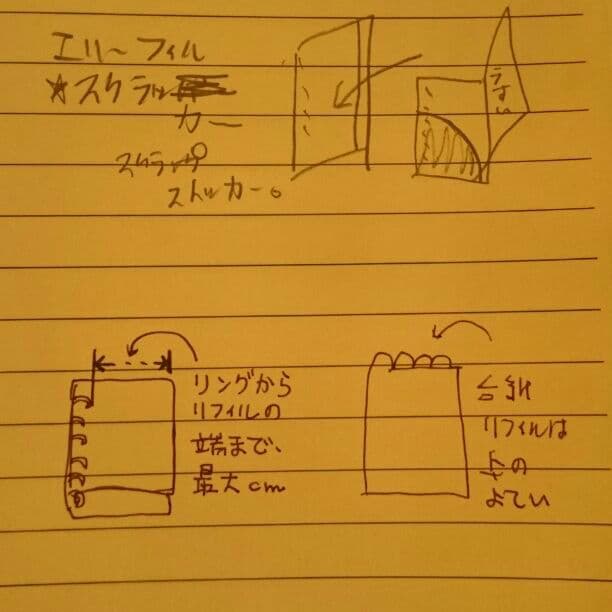 エリーフィル
★スクラッ
カー
スクラップ
ストッカー。
リングから
リフィルの
端まで、
最大cm
台紙
リフィルは
この
よてい